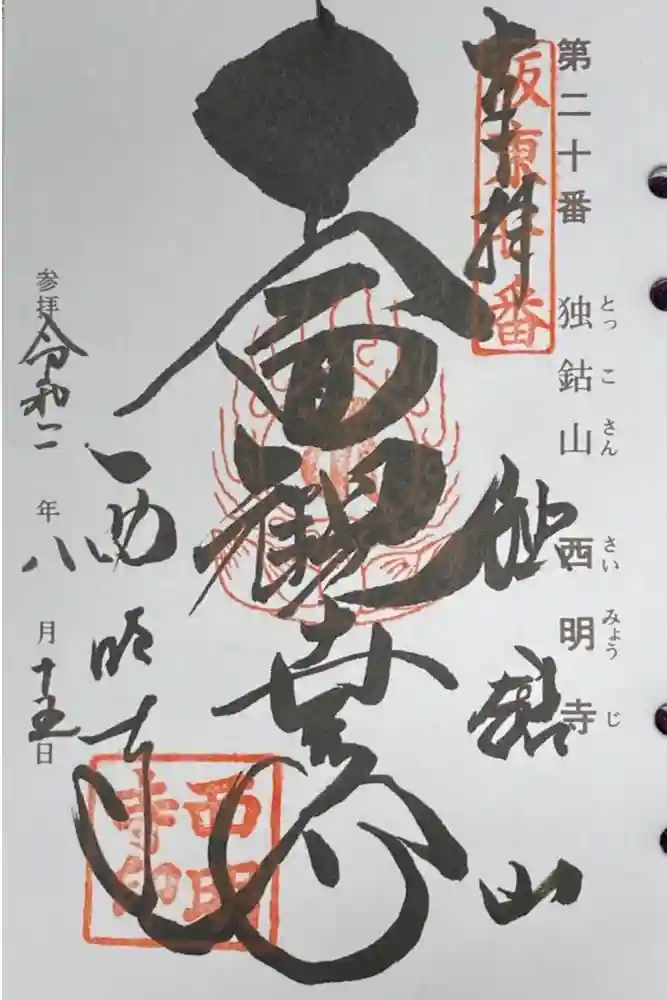 第二十番 独鈷山 西明寺
とっこさん さいみょうじ
奉拝
坂東廿番
独鈷山
面観
西明寺
西明寺印
参拝令和二年八月十五日